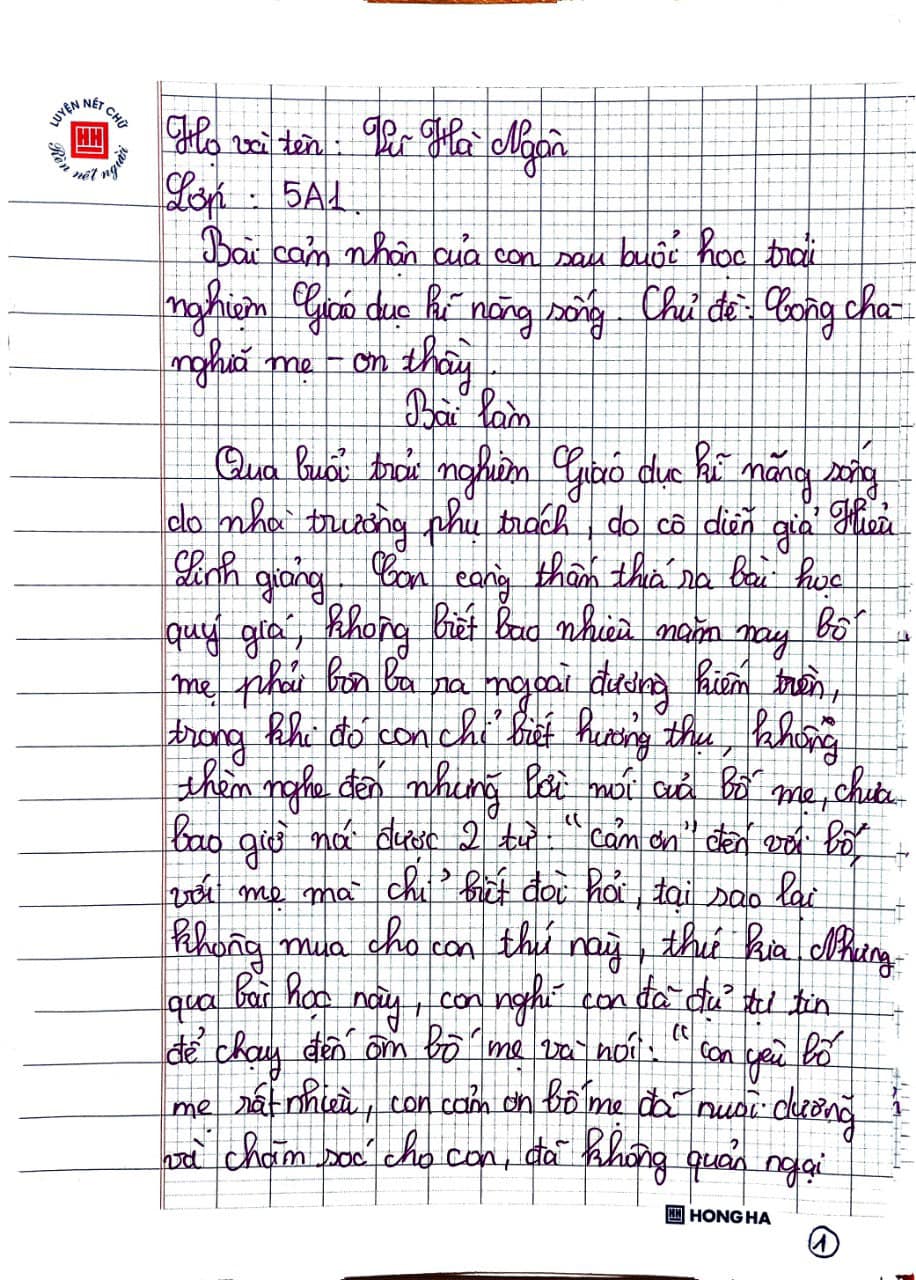 LUYỆN NÉT CHỮ
HH
Rèn nết người
Họ và tên: Từ Hà Ngân
Lớp: 5A1.
Bài cảm nhận của con sau buổi học trải
nghiệm Giáo dục kĩ năng sống. Chủ đề: Công cha-
nghĩa mẹ - ơn thầy.
Bài làm
Qua buổi trải nghiệm Giáo dục kĩ năng sống
do nhà trường phụ trách, do cô diễn giả Hiểu
Linh giảng. Con càng thấm thía ra bài học
quý giá, không biết bao nhiêu năm nay bố
mẹ phải bôn ba ra ngoài đường kiếm
trong khi đó con chỉ biết hưởng thụ, không
thèm nghe đến những lời nói của bố mẹ, chưa
bao giờ nói được 2 từ: "cảm ơn" đến với bố,
với mẹ mà chỉ biết đòi hỏi, tại sao lại
không mua cho con thứ này, thứ kia. Nhưng
qua bài học này, con nghĩ con đã đủ tự tin
để chạy đến ôm bố mẹ và nói: "Con yêu bố
mẹ rất nhiều, con cảm ơn bố mẹ đã nuôi dưỡng
và chăm sóc cho con, đã không quản ngại
HH HONG HA
1